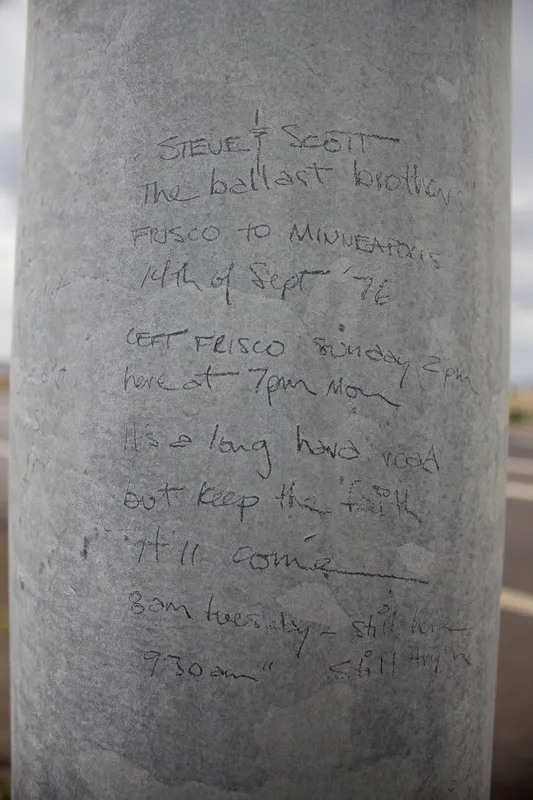 STEVE & SCOTT
The ballast brothers
FRISCO to MINNEAPOLIS
14th of Sept '76
LEFT FRISCO Sunday 2pm
here at 7pm Mon
It's a long hard road
but keep the faith
it'll come
8am tuesday - still here
9:30am " still tryin